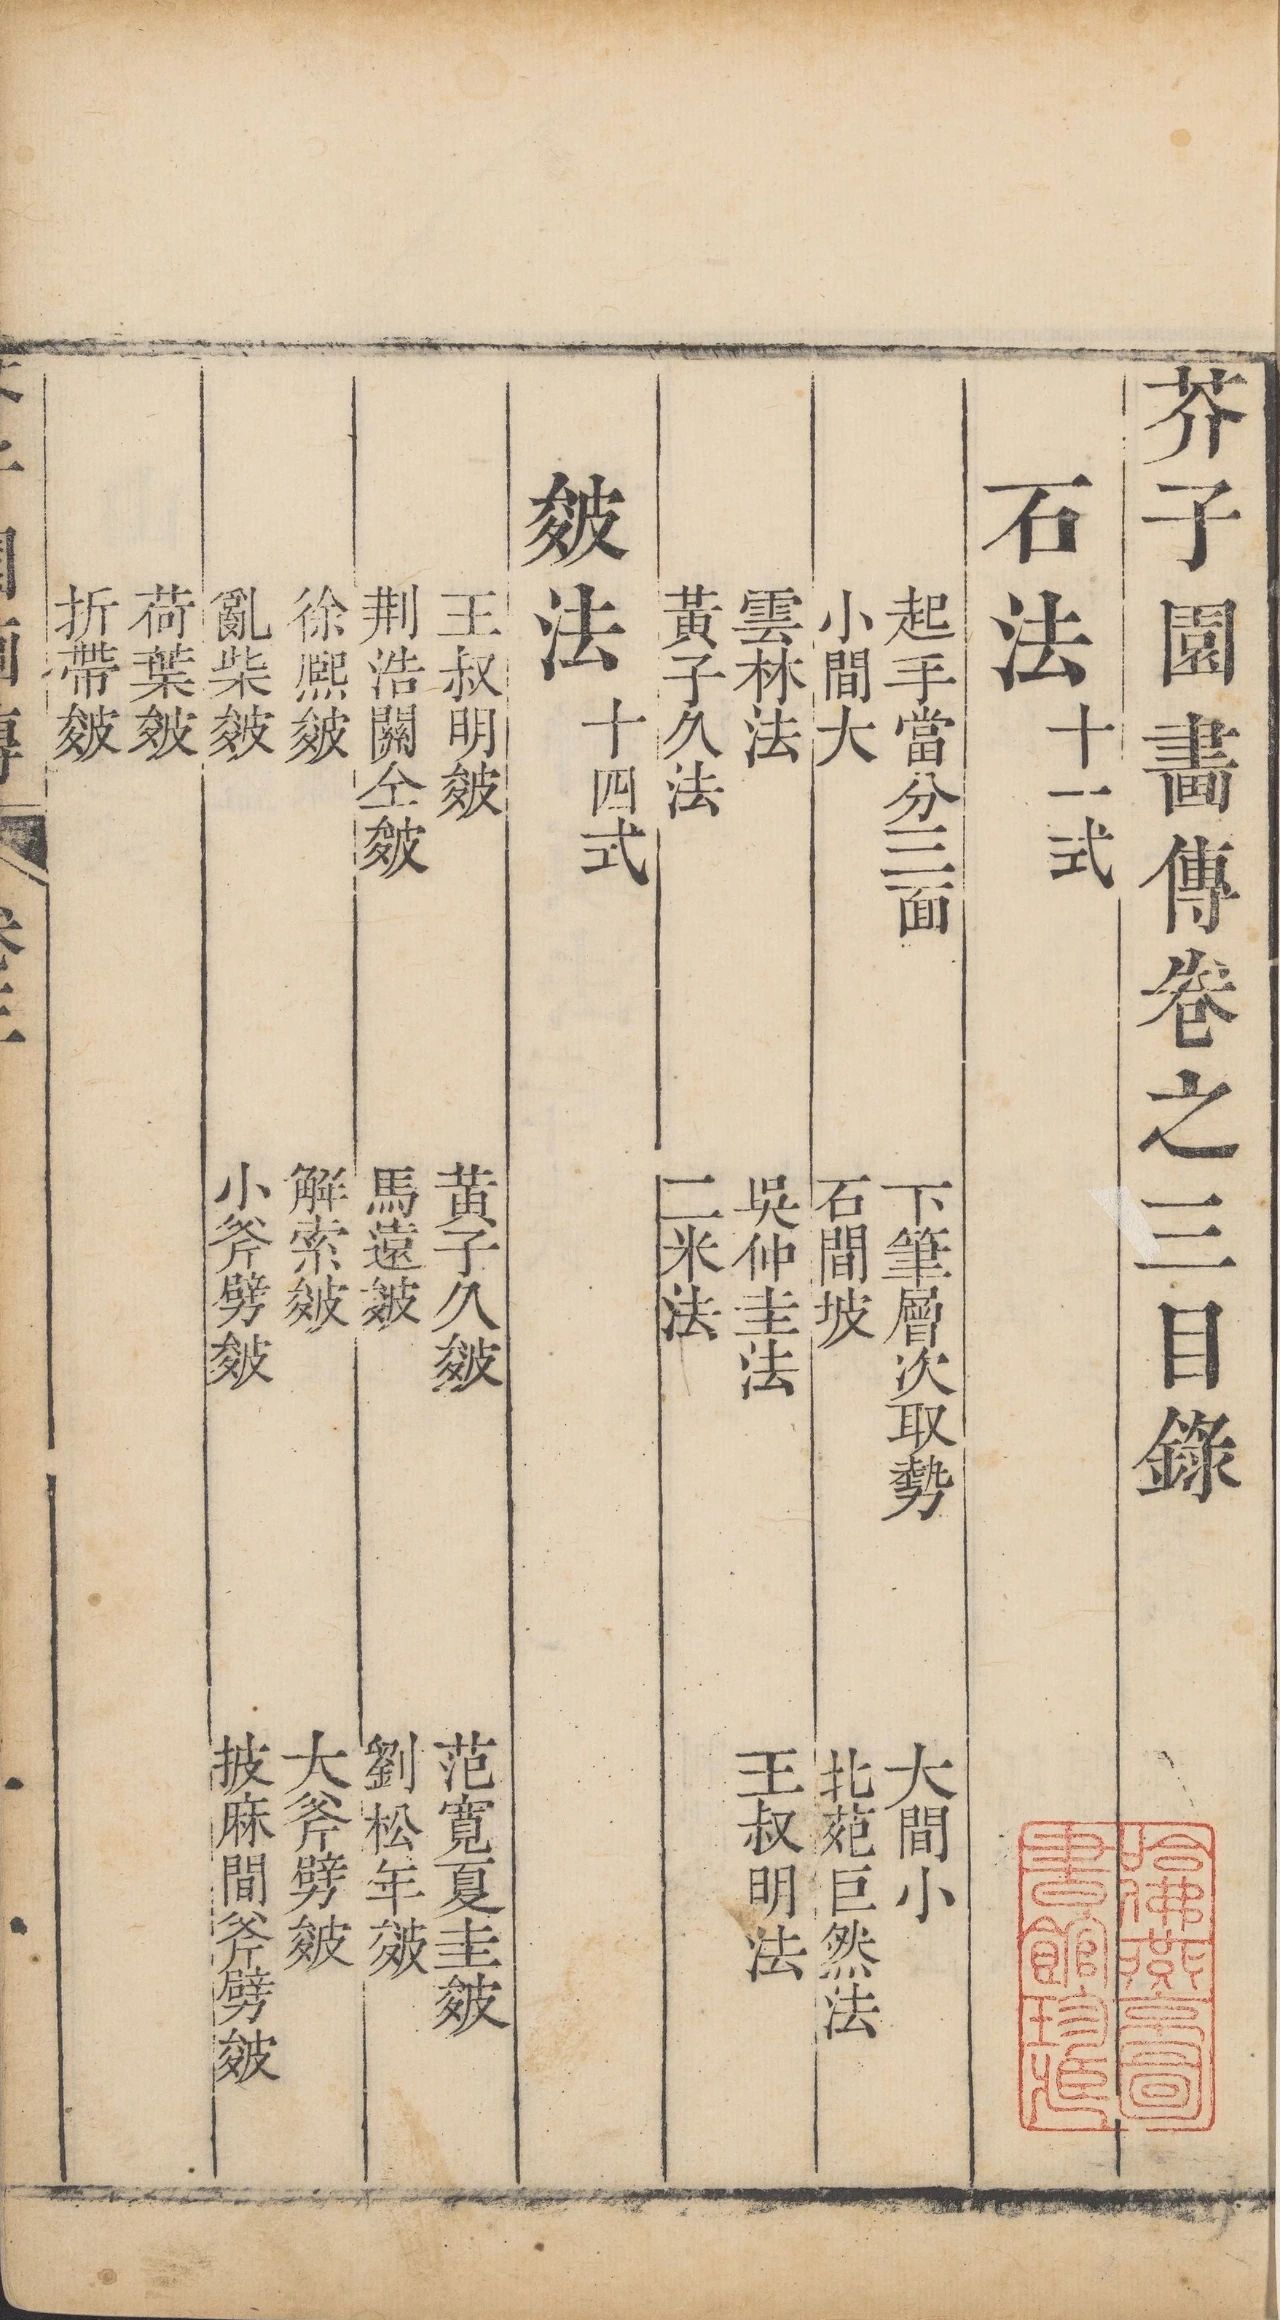 芥子園畫傳卷之三目錄
石法十一式
起手當分三面 下筆層次取勢 大間小
小間大 石間坡 北苑巨然法
雲林法 吳仲圭法 王叔明法
黃子久法 二米法
皴法十四式
王叔明皴 黃子久皴 范寬夏圭皴
荆浩關仝皴 馬遠皴 劉松年皴
徐熈皴 解索皴 大斧劈皴
亂柴皴 小斧劈皴 披麻間斧劈皴
荷葉皴
折帶皴
哈佛燕京圖
書館珍藏